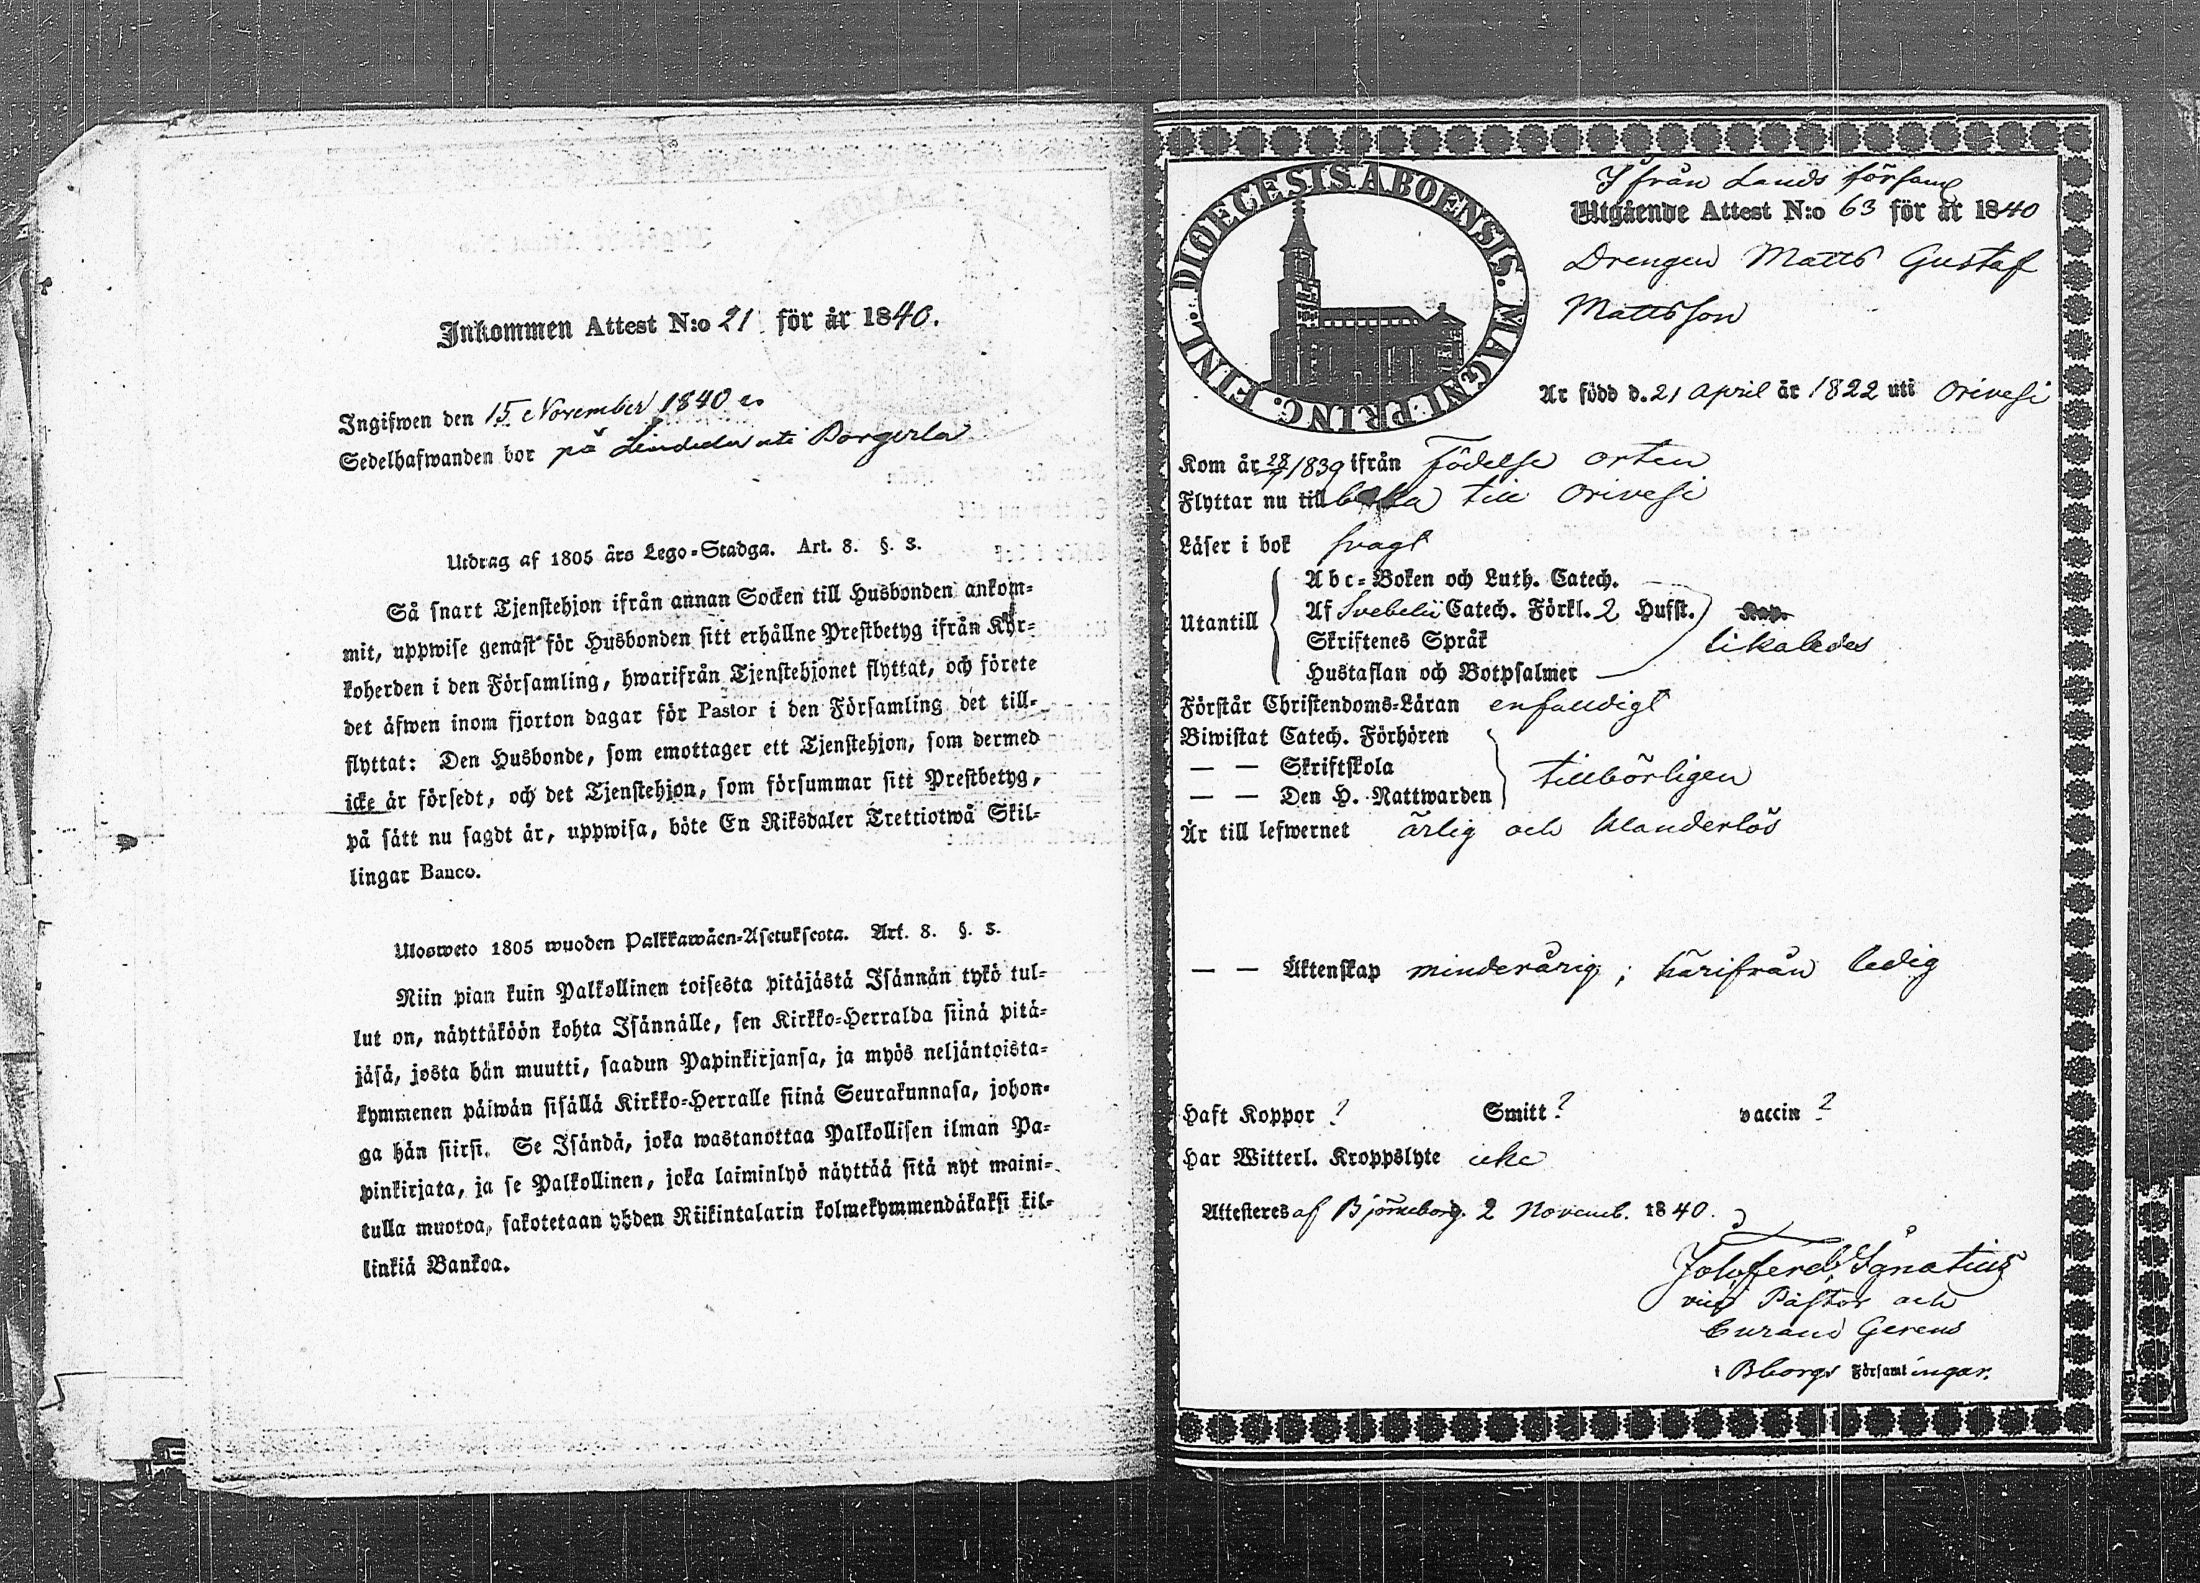 Inkommen Attest N:o 21 för år 1840.
Ingifwen den 15 November 1840
Sedelhafwanden bor på uti
Utdrag af 1805 års Lego-Stadga. Art. 8. §. 3.
Så snart Tjenstehjon ifrån annan Socken till Husbonden ankom-
mit, uppwise genast för Husbonden sitt erhållne Prestbetyg ifrån Kyr-
koherden i den Församling, hwarifrån Tjenstehjonet flyttat, och förete
det äfwen inom fjorton dagar för Pastor i den Församling det till-
flyttat: Den Husbonde, som emottager ett Tjenstehjon, som dermed
icke är försedt, och det Tjenstehjon, som försummar sitt Prestbetyg,
på sätt nu sagdt är, uppwisa, böte En Riksdaler Trettiotwå Skil-
lingar Banco.
Ulosweto 1805 wuoden Palkkawäen-Asetuksesta. Art. 8. §. 3.
Niin pian kuin Palkollinen toisesta pitäjästä Isännän tykö tul-
lut on, näyttäköön kohta Isännälle, sen Kirkko-Herralda siinä pitä-
jäsä, josta hän muutti, saadun Papinkirjansa, ja myös neljäntoista-
kymmenen päiwän sisällä Kirkko-Herralle siinä Seurakunnasa, johon-
ga hän siirsi. Se Isändä, joka wastanottaa Palkollisen ilman Pa-
pinkirjata, ja se Palkollinen, joka laiminlyö näyttää sitä nyt maini-
tulla muotoa, sakotetaan yhden Riikintalarin kolmekymmendäkaksi kil-
linkiä Bankoa.
DIOECESIS ABOENSIS. MAGNI PRINC. FINL.
Ifrån Lands församl
Utgående Attest N:o 63 för år 1840
Drengen Matts Gustaf
Mattsson
Är född d. 21 April år 1822 uti Orivesi
Kom år 28/7 1839 ifrån Födelse orten
Flyttar nu tillbaka till Orivesi
Läser i bok svagt
Utantill
Abc-Boken och Luth. Catech.
Af Svebelii Catech. Förkl. 2 Hufst.
Skriftenes Språk
Hustaflan och Botpsalmer
likaledes
Förstår Christendoms-Läran enfaldigt
Biwistat Catech. Förhören
— — Skriftskola
— — Den H. Nattwarden
tillbörligen
Är till lefwernet ärlig och klanderlös
— — Äktenskap minderårig; härifrån ledig
Haft Koppor ? Smitt ? vaccin ?
Har Witterl. Kroppslyte icke
Attesteres af Björneborg. 2 Novemb. 1840.
Joh. Ferd. Ignatius
vice Pastor och
Curam Gerens
i Bborgs Församlingar.